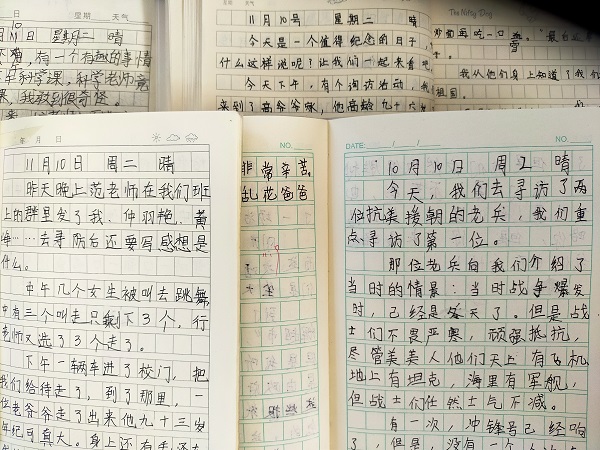 日 星期 天气
11月10日 星期二 晴
有一个有趣的事情
科学课，科学老师竟
果，我感到很奇怪。
11月10号 星期二 晴
今天是一个值得纪念的日子
什么这样说呢？让我们一起来看吧
今天下午，有个询访活动，
来到了高爷爷家，他高龄九十六岁
The Nifty Dog
再吃一口雪
我从他们身上知道了我们
祖国。
年 月 日
11月10日 周二 晴
昨天晚上范老师在我们班
上的群里发了我、仲羽艳、黄
峥……去寻访后还要写感想是
什么。
中午几个女生被叫去跳舞
中有三个叫走只剩下3个，行
老师又选了33个走了。
下午一辆车进了校门，把
我们给待走了，到了那里，一
位老爷爷走了出来他九十三岁
年纪可真大。身上还有手还在
NO.
非常辛苦。
乱花爸爸
DATE: / /
NO.
10月10日 周二 晴
今天，我们去寻访了两
位抗美援朝的老兵，我们重
点寻访了第一位。
那位老兵向我们介绍了
当时的情景：当时战争爆发
时，已经是冬天了。但是战
士们不畏严寒，顽强抵抗，
尽管美美人他们天上有飞机
地上有坦克，海里有军舰，
但战士们任然士气不减。
有一次，冲锋号已经响
了，但是，没有一个